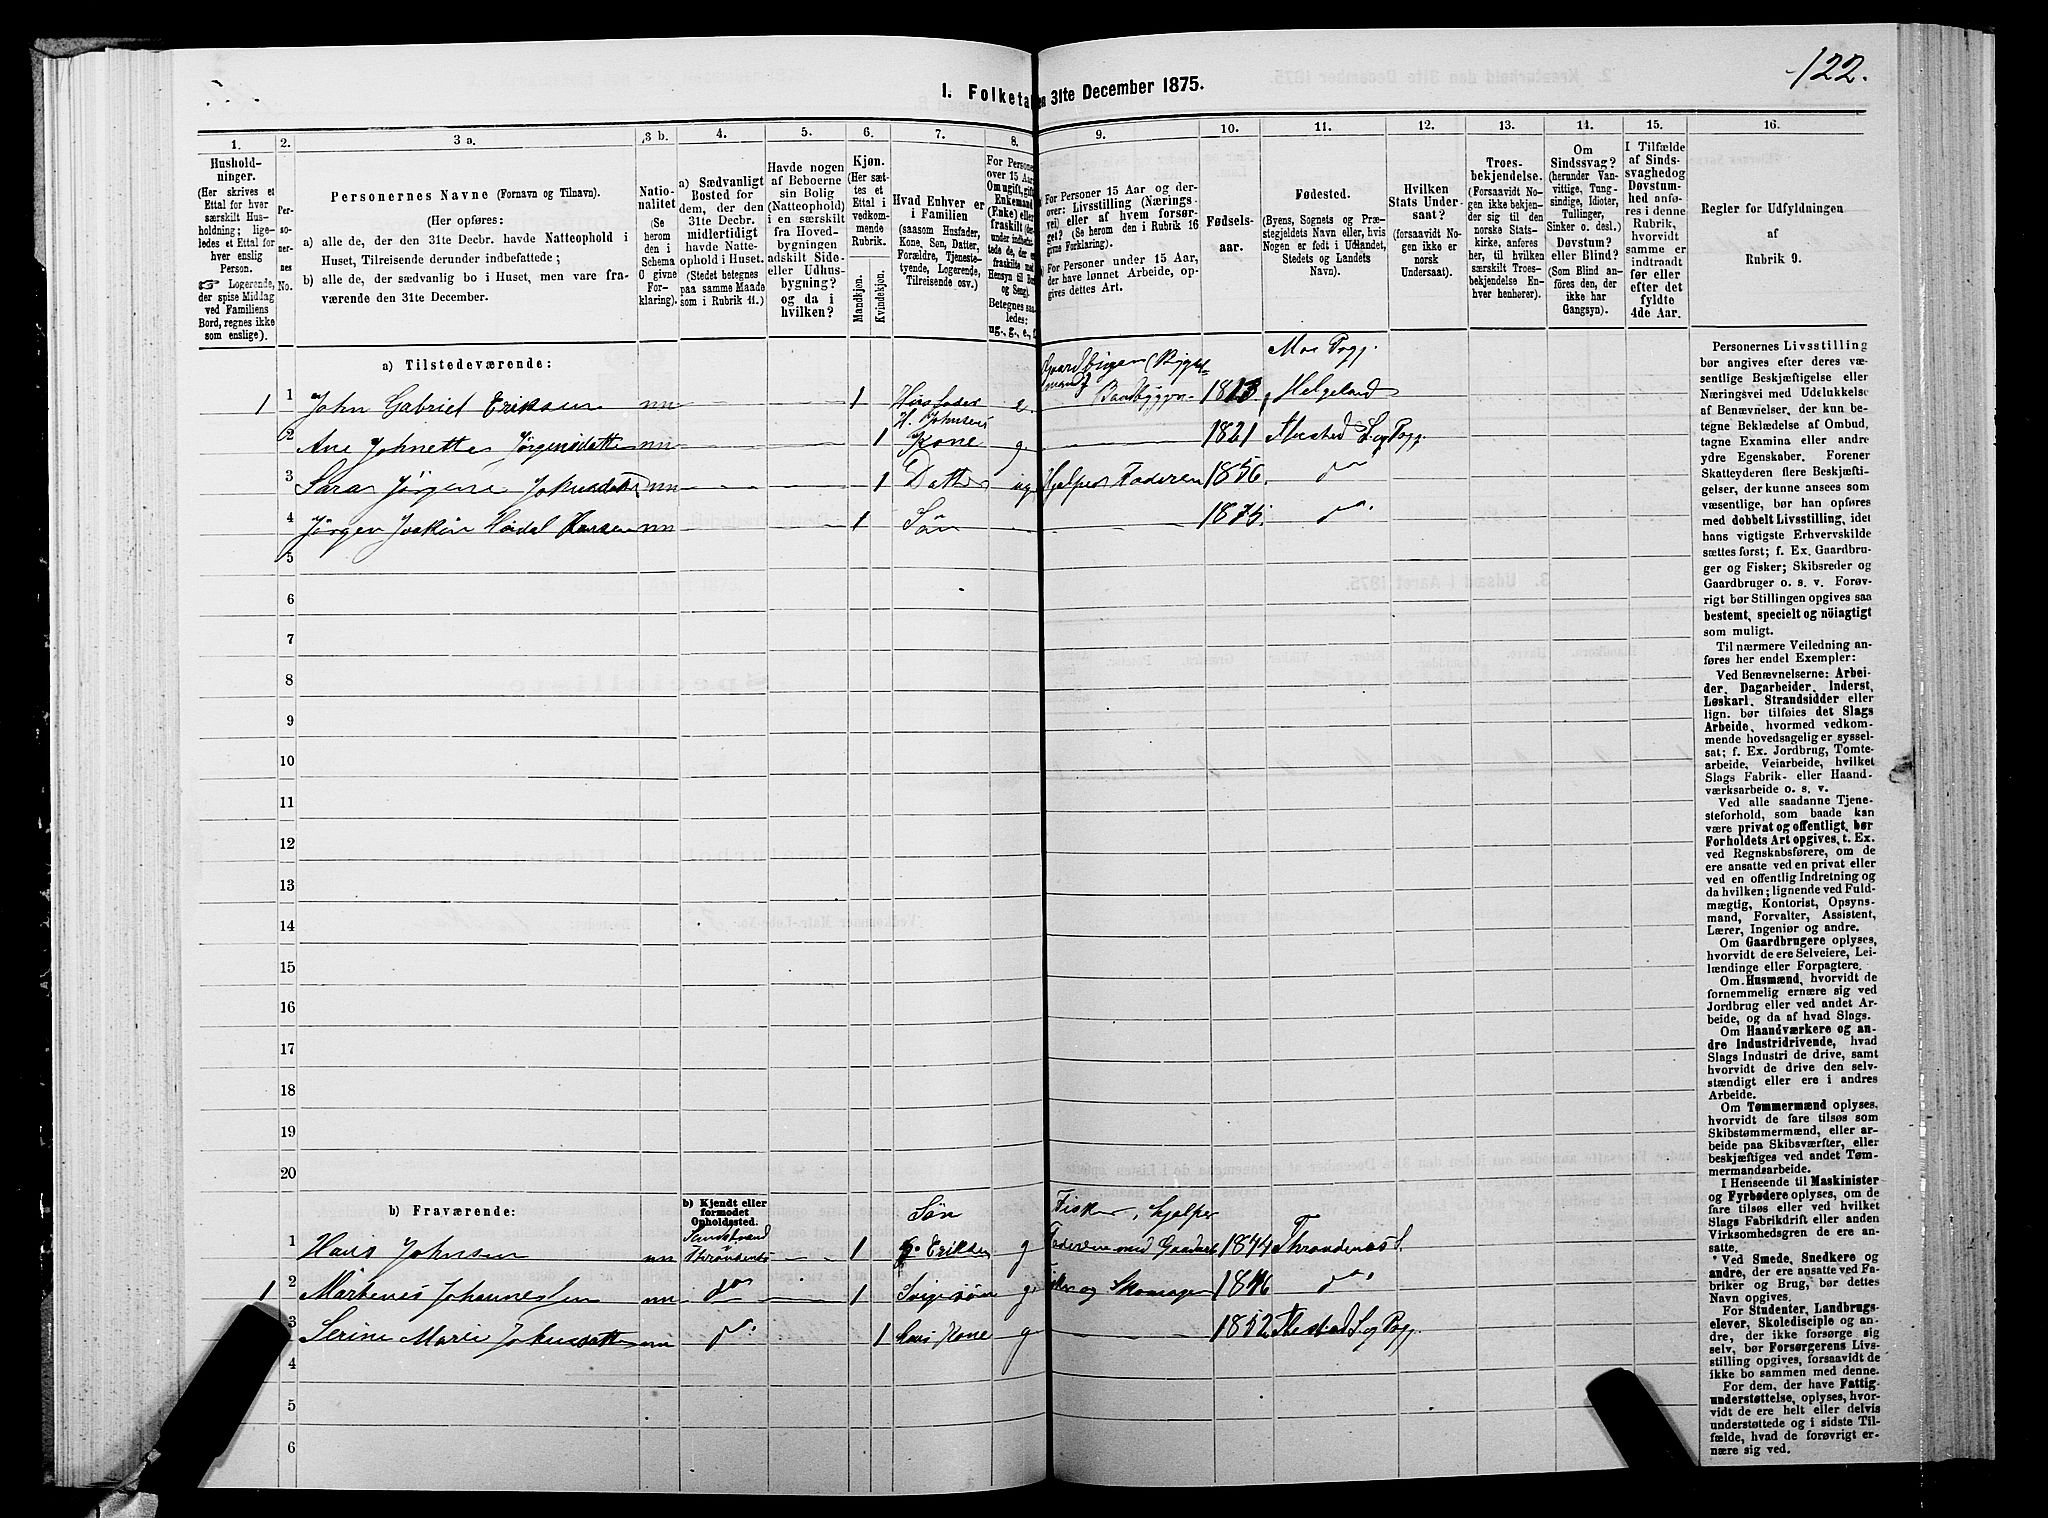 122.
I. Folketa
en 31te December 1875.
1.
2.
3 a.
3 b.
4.
5.
6.
7.
8.
9.
10.
11.
12.
13.
14.
15.
16.
Hushold-
ninger.
(Her skrives et
Ettal for hver
særskilt Hus-
holdning; lige-
ledes et Ettal for
hver enslig
Person.
☞ Logerende,
der spise Middag
ved Familiens
Bord, regnes ikke
som enslige).
Per-
so-
ner-
nes
No.
Personernes Navne (Fornavn og Tilnavn).
(Her opføres:
a) alle de, der den 31te Decbr. havde Natteophold i
Huset, Tilreisende derunder indbefattede;
b) alle de, der sædvanlig bo i Huset, men vare fra-
værende den 31te December.
Natio-
nalitet
(Se
herom
den i
Schema
O givne
For-
klaring).
a) Sædvanligt
Bosted for
dem, der den
31te Decbr.
midlertidigt
havde Natte-
ophold i Huset.
(Stedet betegnes
paa samme Maade
som i Rubrik 11.)
Havde nogen
af Beboerne
sin Bolig
(Natteophold)
i en særskilt
fra Hoved-
bygningen
adskilt Side-
eller Udhus-
bygning?
og da i
hvilken?
Kjøn.
(Her sæt-
tes et
Ettal i
vedkom-
mende
Rubrik.
Mandkjøn.
Kvindekjøn.
Hvad Enhver er
i Familien
(saasom Husfader,
Kone, Søn, Datter,
Forældre, Tjeneste-
tyende, Logerende,
Tilreisende osv.)
For Personer
over 15 Aar:
Om ugift, gift,
Enkemand
(Enke) eller
fraskilt
Betegnes saa-
ledes:
ug., g., e., f.
For Personer 15 Aar og der-
over: Livsstilling (Nærings-
vei) eller af hvem forsør-
get? (Se herom den i Rubrik 16
givne Forklaring).
For Personer under 15 Aar,
der have lønnet Arbeide, op-
gives dettes Art.
Fødsels-
aar.
Fødested.
(Byens, Sognets og Præ-
stegjeldets Navn eller, hvis
Nogen er født i Udlandet,
Stedets og Landets
Navn).
Hvilken
Stats Under-
saat?
(forsaavidt No-
gen ikke er
norsk
Undersaat).
Troes-
bekjendelse.
(Forsaavidt No-
gen ikke bekjen-
der sig til den
norske Stats-
kirke, anføres
her, til hvilken
særskilt Troes-
bekjendelse En-
Enhver henhører).
Om
Sindssvag?
(herunder Van-
vittige, Tung-
sindige, Idioter,
Tullinger,
Sinker o. desl.)
Døvstum?
eller Blind?
(Som Blind an-
føres den, der
ikke har
Gangsyn).
I Tilfælde
af Sinds-
svaghed og
Døvstum-
hed anfø-
res i denne
Rubrik,
hvorvidt
samme er
indtraadt
før eller
efter det
fyldte
4de Aar.
Regler for Udfyldningen
af
Rubrik 9.
a) Tilstedeværende:
Gaardbruger
Moe Pgj.
1 1 John Gabriel Eriksen nn 1 Husfader e Baadbygger 1813 Helgeland
H. Johnsens
2 Ane Johnetta Jørgensdatter nn 1 Kone g 1821 Thrsted S. og Pgj.
3 Sara Jørgine Johnsdatter nn 1 Datter ug hjælper Faderen 1856 do
4 Jørgen Joakim Hansen nn 1 Søn 1875 do
5
6
7
8
9
10
11
12
13
14
15
16
17
18
19
20
b) Fraværende:
b) Kjendt eller
formodet
Opholdssted.
Sandstrand Søn Fisker, hjælper
1 Hans Johnsen nn Throndenes 1 G. Eriksen g Faderen med Gaardsb 1844 Throndenæs S.
1 2 Mortenes Johannessen nn do 1 Svigersøn g Fisker og Skomager 1846 do
3 Serine Marie Johnsdatter nn do 1 hans Kone g 1852 S. og Pgj.
4
5
6
Personernes Livsstilling
bør angives efter deres væ-
sentlige Beskjæftigelse eller
Næringsvei med Udelukkelse
af Benævnelser, der kun be-
tegne Beklædelse af Ombud,
tagne Examina eller andre
ydre Egenskaber. Forener
Skatteyderen flere Beskjæfti-
gelser, der kunne ansees som
væsentlige, bør han opføres
med dobbelt Livsstilling, idet
hans vigtigste Erhvervskilde
sættes først; f. Ex. Gaardbru-
ger og Fisker; Skibsreder og
Gaardbruger o. s. v. Forøv-
rigt bør Stillingen opgives saa
bestemt, specielt og nöiagtigt
som muligt.
Til nærmere Veiledning an-
føres her endel Exempler:
Ved Benævnelserne: Arbei-
der, Dagarbeider, Inderst,
Løskarl, Strandsidder eller
lign. bør tilføies det Slags
Arbeide, hvormed vedkom-
mende hovedsagelig er syssel-
sat; f. Ex. Jordbrug, Tomte-
arbeide, Veiarbeide, hvilket
Slags Fabrik- eller Haand-
værksarbeide o. s. v.
Ved alle saadanne Tjene-
steforhold, som baade kan
være privat og offentligt, bør
Forholdets Art opgives, t. Ex.
ved Regnskabsførere, om de
ere ansatte ved en privat eller
ved en offentlig Indretning og
da hvilken; lignende ved Fuld-
mægtig, Kontorist, Opsyns-
mand, Forvalter, Assistent,
Lærer, Ingeniør og andre.
Om Gaardbrugere oplyses,
hvorvidt de ere Selveiere, Lei-
lændinge eller Forpagtere.
Om Husmænd, hvorvidt de
fornemmelig ernære sig ved
Jordbrug eller ved andet Ar-
beide, og da af hvad Slags.
Om Haandværkere og an-
dre Industridrivende, hvad
Slags Industri de drive, samt
hvorvidt de drive den selv-
stændigt eller ere i andres
Arbeide.
Om Tømmermænd oplyses,
hvorvidt de fare tilsøs som
Skibstømmermænd, eller ar-
beide paa Skibsværfter, eller
beskjæftiges ved andet Tøm-
mermandsarbeide.
I Henseende til Maskinister
og Fyrbødere oplyses, om de
fare tilsøs eller ved hvilket
Slags Fabrikdrift eller anden
Virksomhedsgren de ere an-
satte.
Ved Smede, Snedkere og
andre, der ere ansatte ved Fa-
briker og Brug, bør dettes
Navn opgives.
For Studenter, Landbrugs-
elever, Skoledisciple og an-
dre, der ikke forsørge sig
selv, bør Forsørgerens Livs-
stilling opgives, forsaavidt de
ikke bo sammen med denne.
For dem, der have Fattig-
understøttelse, oplyses, hvor-
vidt de ere helt eller delvis
understøttede og i sidste Til-
fælde, hvad de forøvrigt er-
nære sig ved.